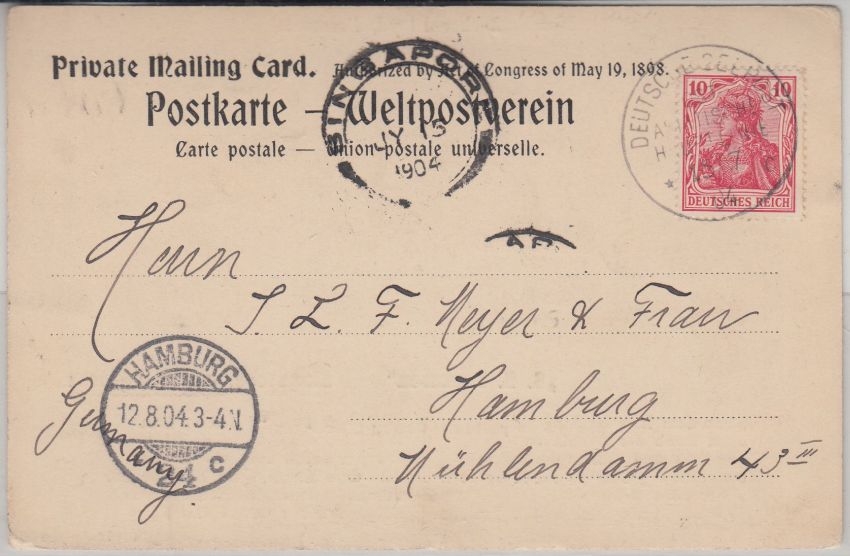 Private Mailing Card. Authorized by Act of Congress of May 19, 1898.
Postkarte – Weltpostverein
Carte postale — Union postale universelle.
SINGAPORE
JY 15
1904
DEUTSCHE SEEPOST
10 10
DEUTSCHES REICH
Herrn
J L. F. Meyer & Frau
Hamburg
Mühlendamm 43 III
Germany
HAMBURG
12.8.04. 3-4 N.
C